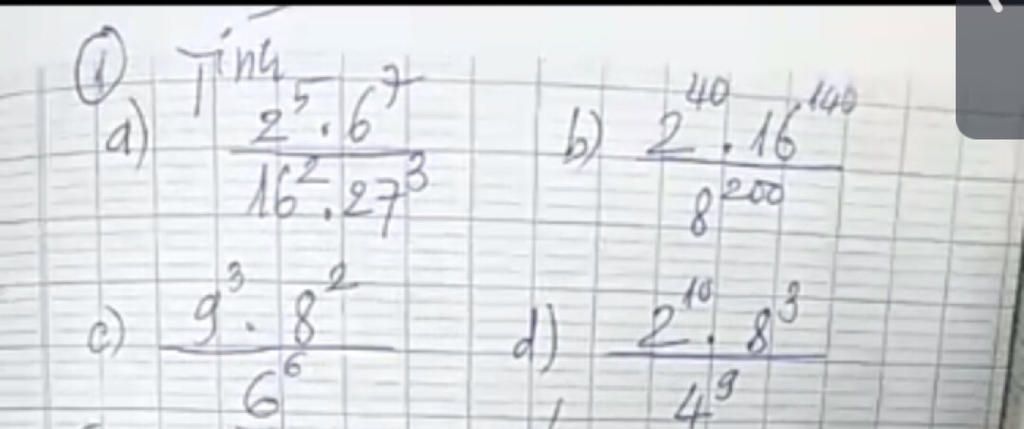 ① Tính
a) (2⁵ . 6⁷) / (16² . 27³)  b) (2⁴⁰ . 16¹⁴⁰) / 8²⁰⁰
c) (9³ . 8²) / 6⁶  d) (2¹⁰ . 8³) / 4⁹